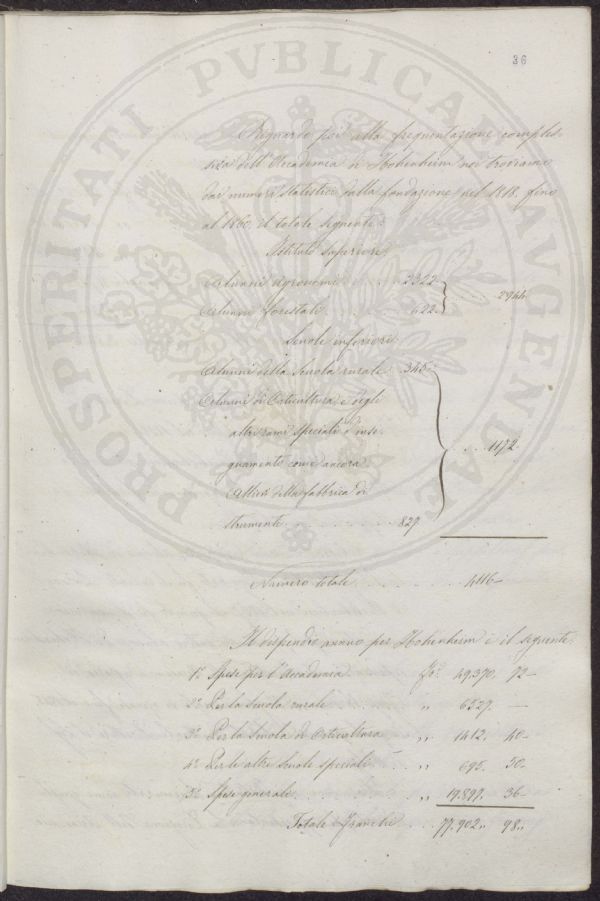 36
Riguardo poi alla frequentazione comples-
siva dell'Accademia di Hohenheim noi troviamo
dai numeri statistici dalla fondazione nel 1818, fino
al 1860, il totale seguente:
Istituto superiore.
Alunni Agronomi . . . . . 2322
Alunni forestali . . . . . 622. . . . . 2944.
Scuole inferiori
Alunni della Scuola rurale. 345.
Alunni di Orticultura e degli
altri rami speciali d'inse-
gnamento come ancora
Allievi della fabbrica di
strumenti . . . . . 827 . . . 1172.
Numero totale . . . . . 4116 —
Il dispendio annuo per Hohenheim è il seguente:
1.º Spese per l'Accademia Fr. 49,370. 72 —
2.º Per la Scuola rurale „ 6527. —
3.º Per la Scuola di Orticultura „ 1412. 40 —
4.º Per le altre Scuole speciali — „ 695. 50 „
5.º Spese generali . . . . „ 19.897. 36 —
Totale Franchi . . . 77,902 „ 98 „
PROSPERITATI PVBLICAE AVGENDAE